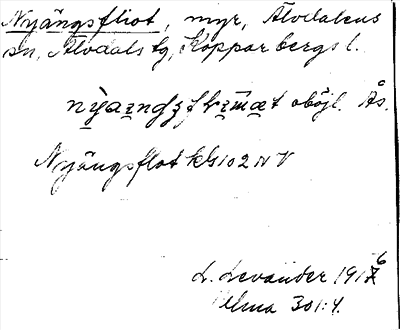 Nyängsfliot, myr, Älvdalens
sn, Älvdals tg, Kopparbergs l.
oböjl. Ås.
Nyängsflot kG 102 NV
L. Levander 1916
Ulma 301:4.